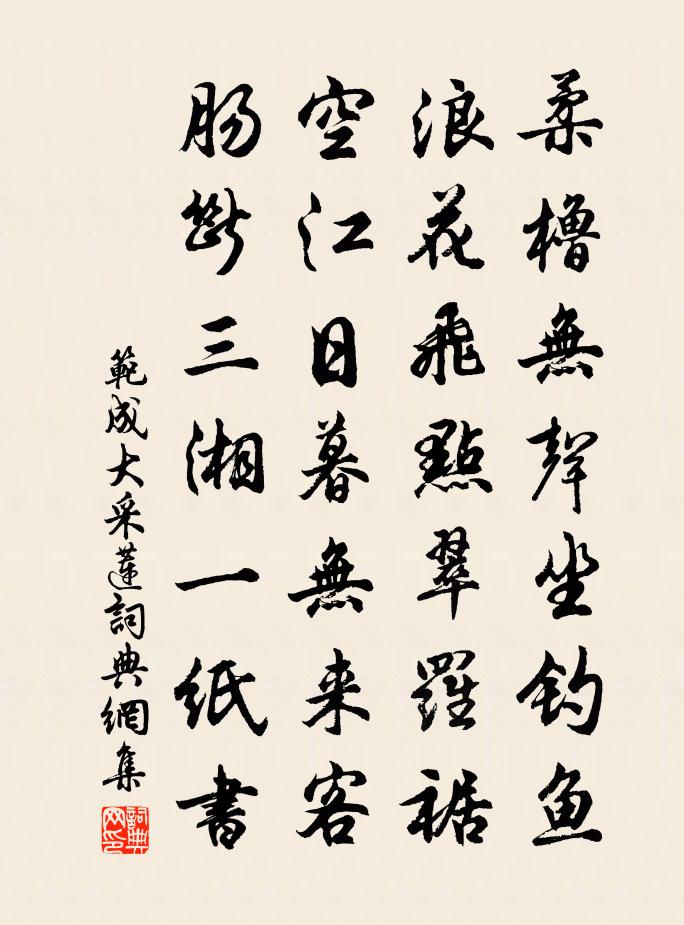 柔櫓無聲坐釣魚
浪花飛點翠羅裾
空江日暮無来客
腸斷三湘一紙書
範成大采蓮詞典網集
詞典網印